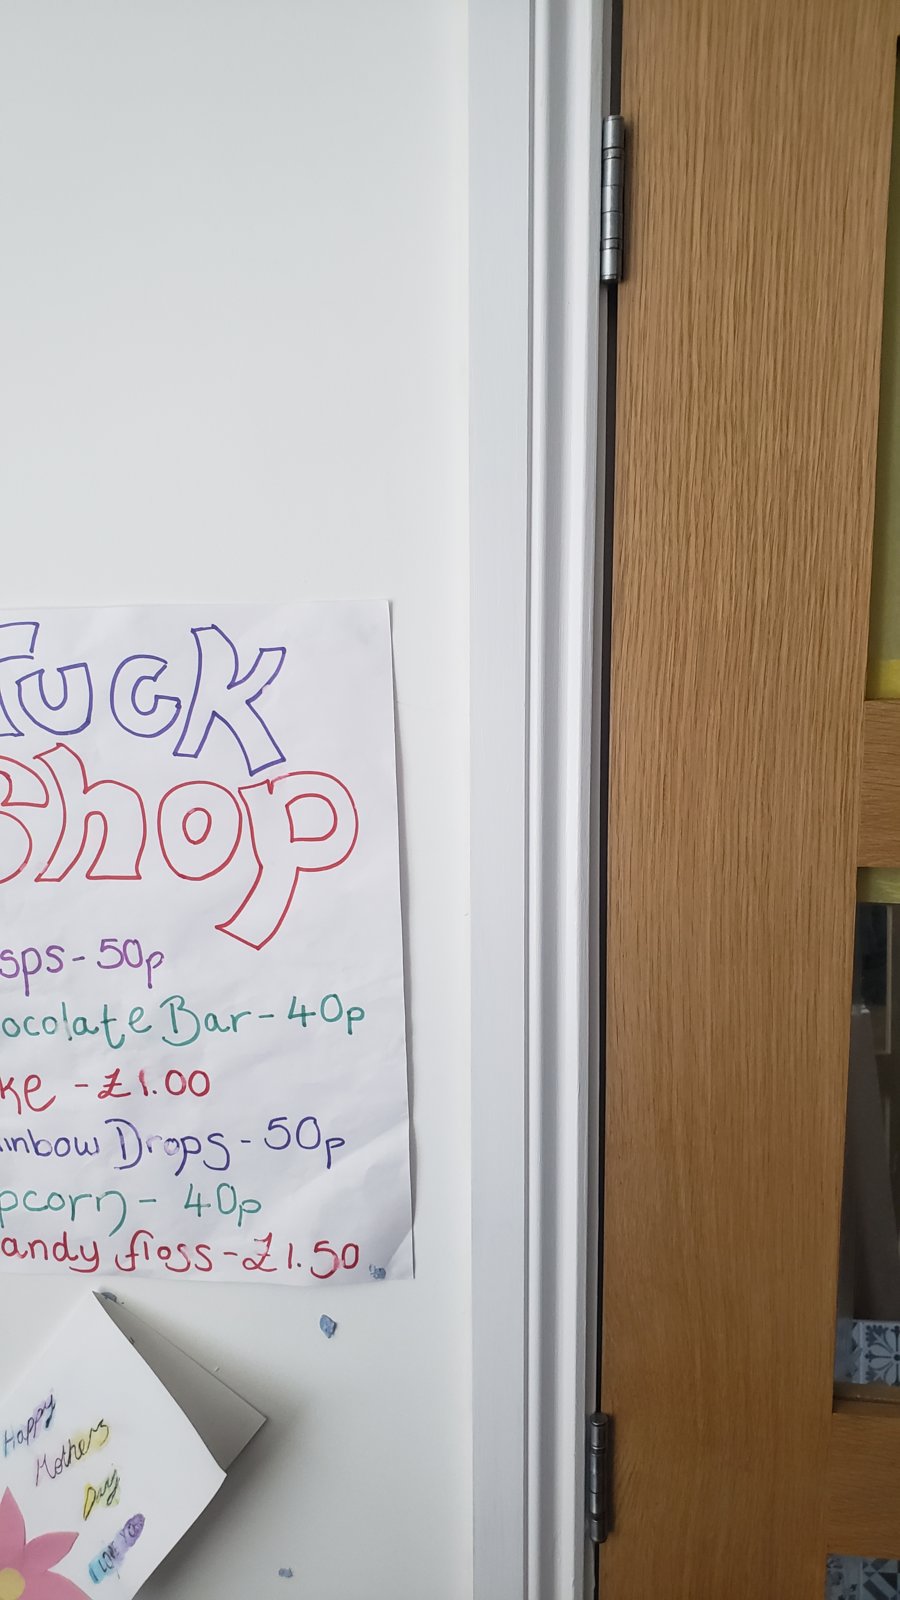 Tuck
Shop
sps - 50p
ocolate Bar - 40p
ke - £1.00
inbow Drops - 50p
pcorn - 40p
andy floss - £1.50
Happy
Mothers
Day
I LOVE YOU